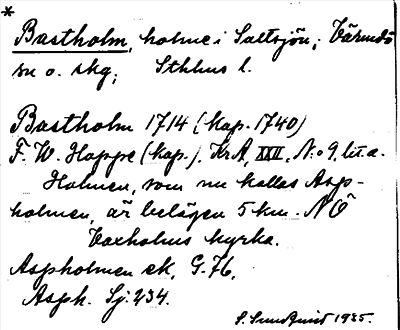 *
Bastholm, holme i Saltsjön; Värmdö
sn o. skg; Sthlms l.
Bastholm 1714 (kap. 1740)
F. W. Hoppe (kap.). KrA, XXII, N:o 9. lit. a.
Holmen, som nu kallas Asp-
holmen, är belägen 5 km. NÖ
Vaxholms kyrka.
Aspholmen ek. G. 76,
Asph. Sj. 234.
S. Sundquist 1935.